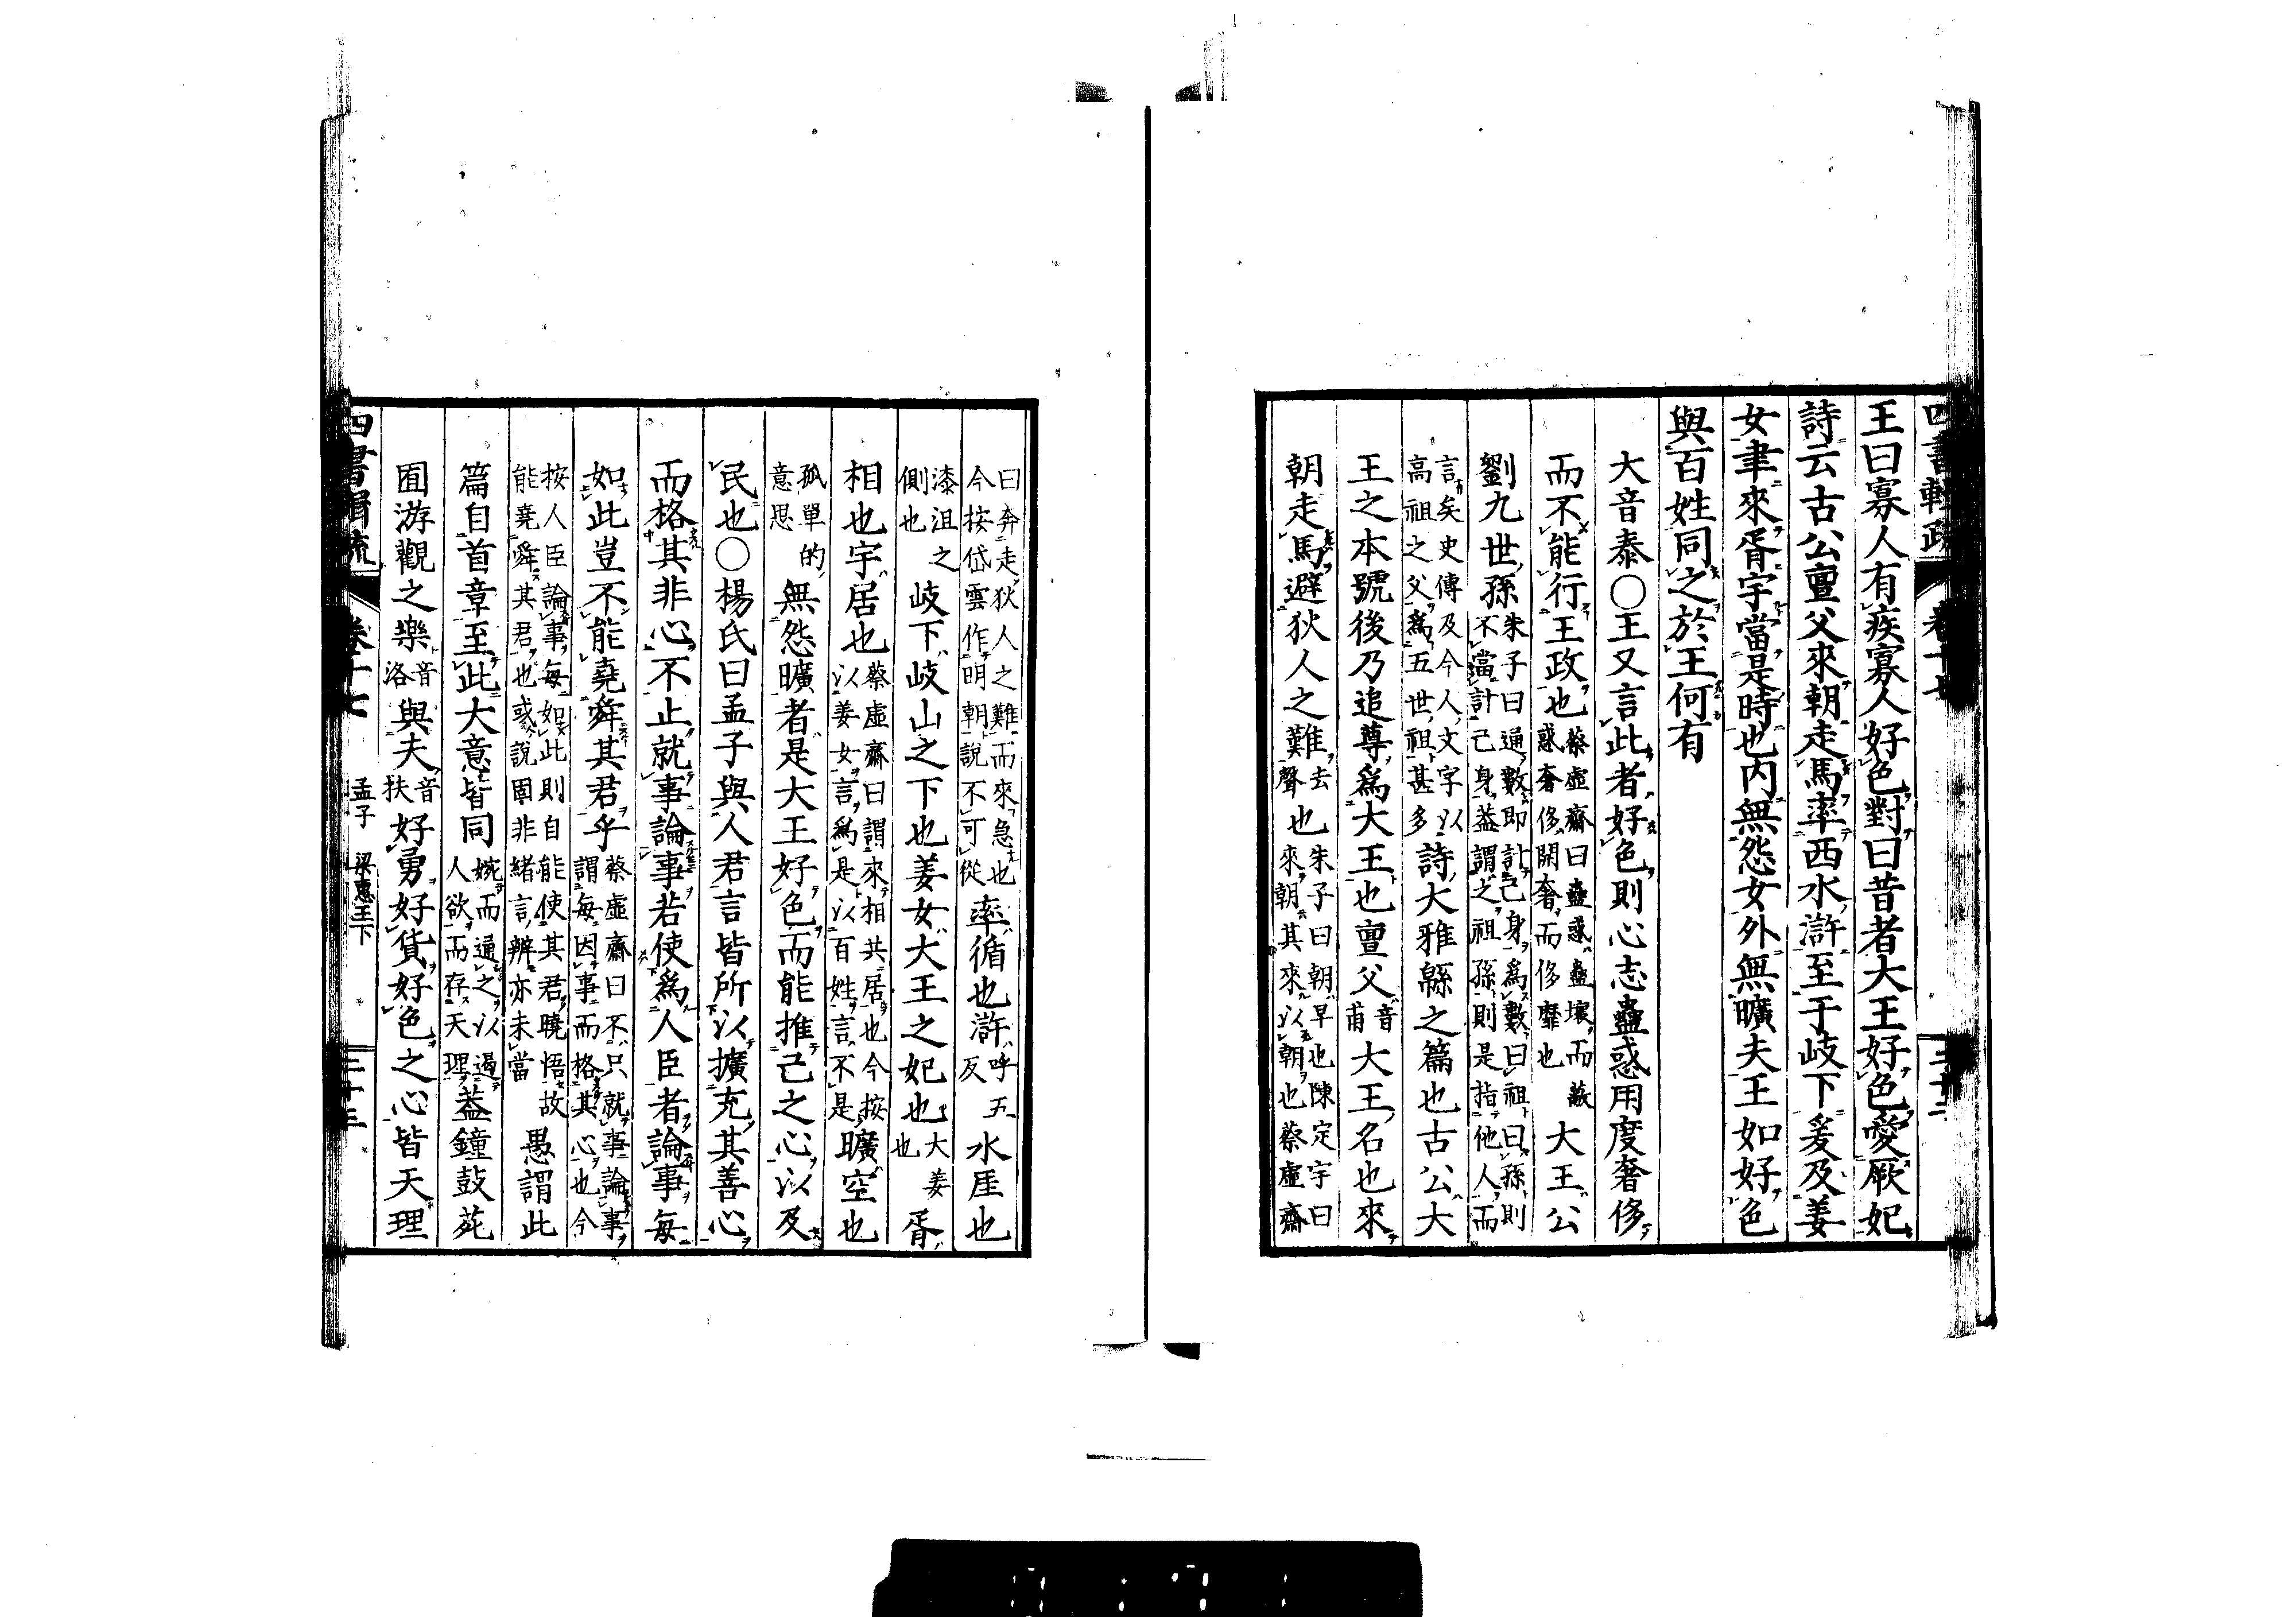 四書輯疏 卷十七
王曰寡人有疾寡人好色對曰昔者大王好色愛厥妃
詩云古公亶父來朝走馬率西水滸至于岐下爰及姜
女聿來胥宇當是時也內無怨女外無曠夫王如好色
與百姓同之於王何有
大音泰○王又言此者好色則心志蠱惑用度奢侈
而不能行王政也蔡虛齋曰蠱惑蠱壞而蔽惑奢侈開奢而侈靡也大王公
劉九世孫朱子曰逼數即計己身爲數曰祖曰孫則不當計己身蓋謂之祖孫則是指他人而
言矣史傳及今人文字以高祖之父爲五世祖甚多詩大雅緜之篇也古公大
王之本號後乃追尊爲大王也亶父音甫大王名也來
朝走馬避狄人之難去聲也朱子曰朝早也陳定宇曰來朝其來以朝也蔡虛齋
曰奔走狄人之難而來急也今按岱雲作明朝說不可從率循也滸呼五反水厓也
漆沮之側也岐下岐山之下也姜女大王之妃也大姜也胥
相也宇居也蔡虛齋曰謂來相共居也今按以姜女言爲是以百姓言不是曠空也
孤單的意思無怨曠者是大王好色而能推己之心以及
民也○楊氏曰孟子與人君言皆所以擴充其善心
而格其非心不止就事論事若使爲人臣者論事每
如此豈不能堯舜其君乎蔡虛齋曰不只就事論事謂每因事而格其心也今
按人臣論事每如此則自能使其君曉悟故能堯舜其君也或說固非緒言辨亦未當愚謂此
篇自首章至此大意皆同婉而逼之以遏人欲而存天理蓋鐘鼓苑
囿游觀之樂音洛與夫音扶好勇好貨好色之心皆天理
四書輯疏 卷十七 孟子 梁惠王下